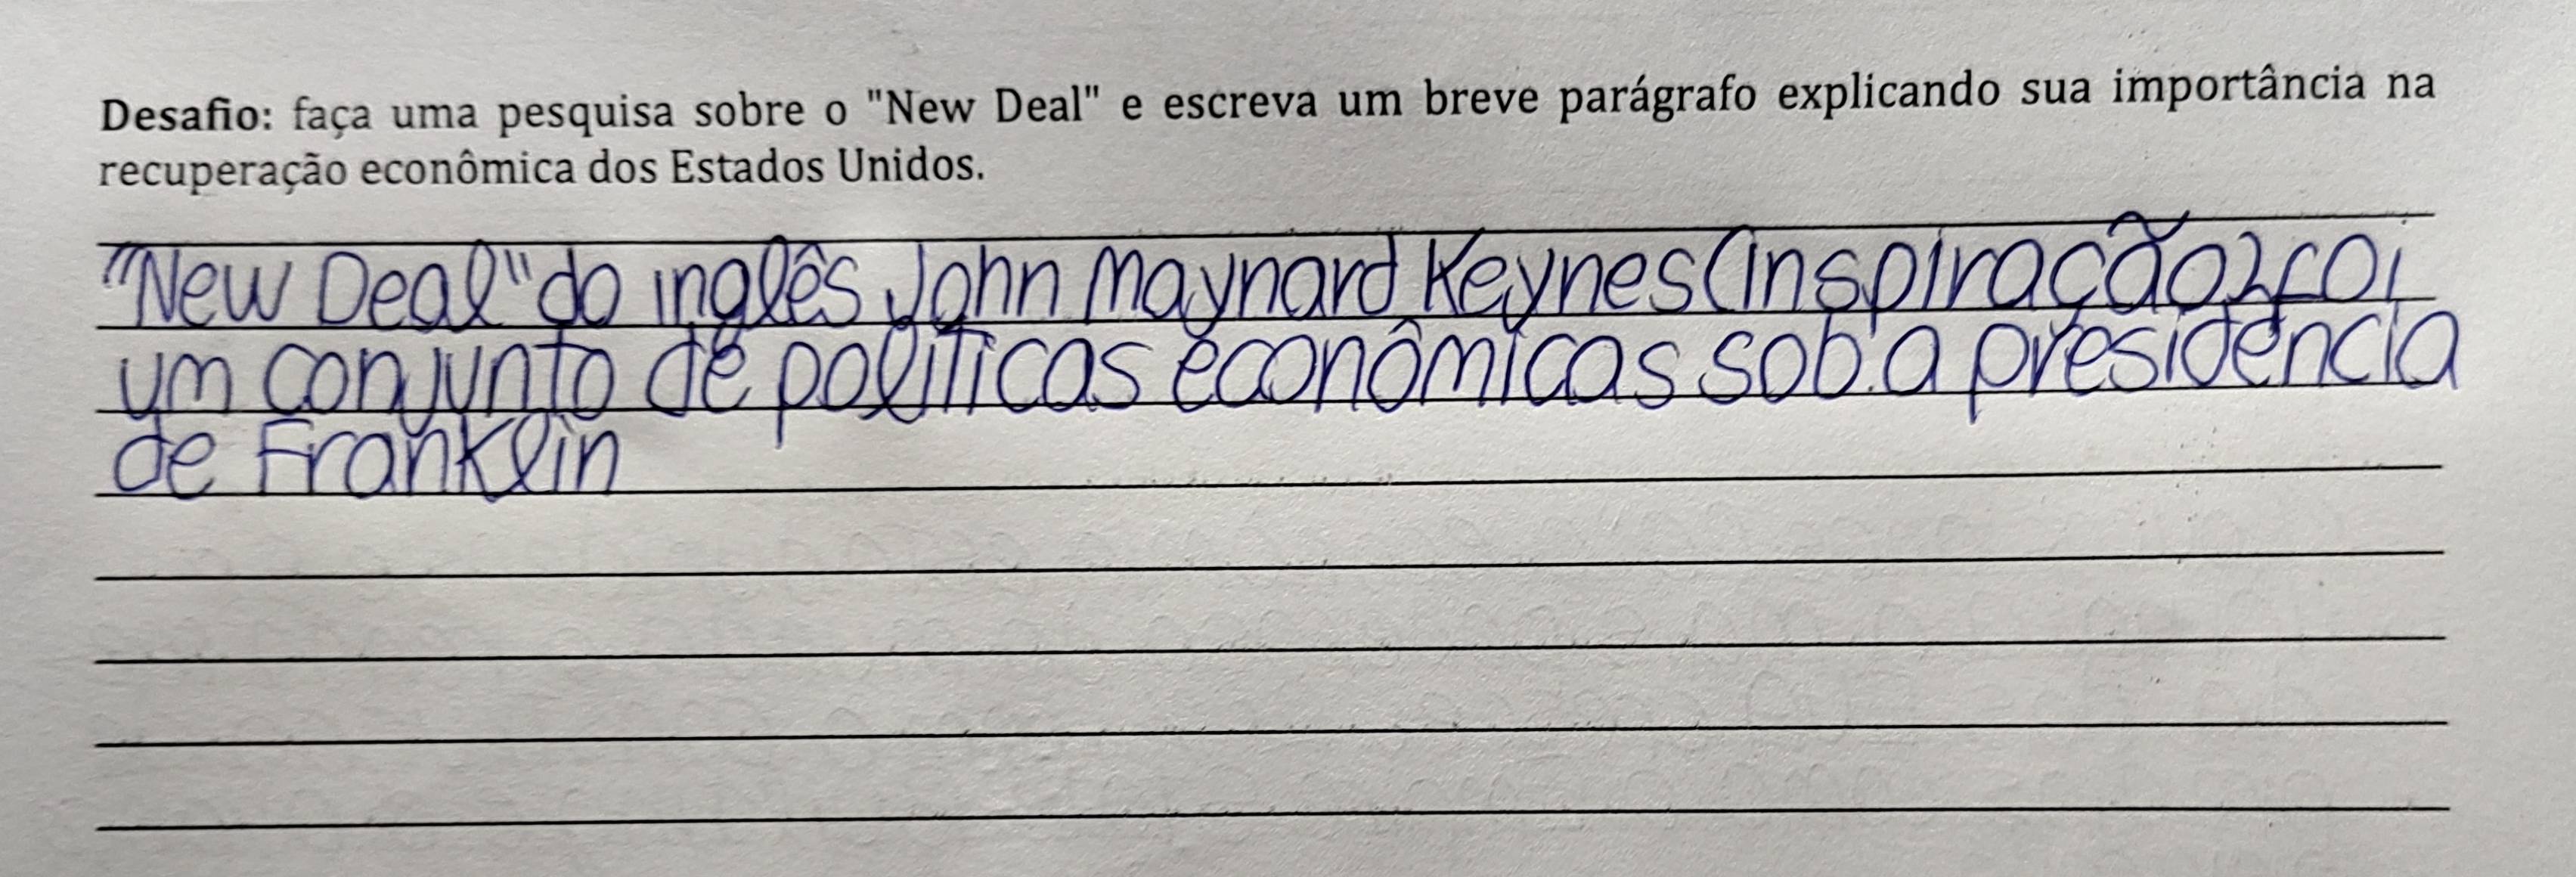 Desafio: faça uma pesquisa sobre o "New Deal" e escreva um breve parágrafo explicando sua importância na
recuperação econômica dos Estados Unidos.
"New Deal" do inglês John Maynard Keynes (inspiração) foi
um conjunto de políticas econômicas sob a presidência
de Franklin